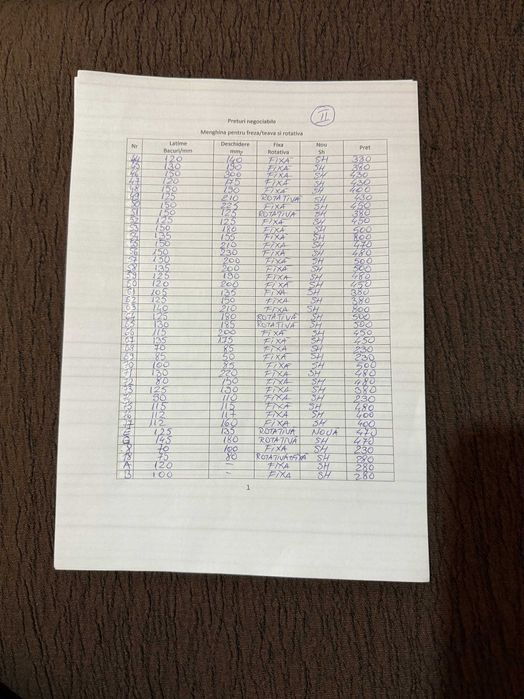 II
Preturi negociabile
Menghina pentru freza/teava si rotativa
Nr Latime Bacuri/mm Deschidere mm Fixa Rotativa Nou Sh Pret
44 120 140 FIXA SH 330
45 130 190 FIXA SH 380
46 150 300 FIXA SH 430
47 120 175 FIXA SH 430
48 150 190 FIXA SH 400
49 125 210 ROTATIVA SH 430
50 130 225 FIXA SH 450
51 150 125 ROTATIVA SH 380
52 125 125 FIXA SH 450
53 150 180 FIXA SH 500
54 135 155 FIXA SH 800
55 150 210 FIXA SH 470
56 150 230 FIXA SH 480
57 130 200 FIXA SH 500
58 135 200 FIXA SH 500
59 125 190 FIXA SH 480
60 120 200 FIXA SH 450
61 105 135 FIXA SH 380
62 125 150 FIXA SH 380
63 140 210 FIXA SH 800
64 125 180 ROTATIVA SH 500
65 130 185 ROTATIVA SH 500
66 115 200 FIXA SH 450
67 135 175 FIXA SH 450
68 70 85 FIXA SH 230
69 85 50 FIXA SH 230
70 100 85 FIXA SH 500
71 130 220 FIXA SH 480
72 80 150 FIXA SH 480
73 125 130 FIXA SH 380
74 90 110 FIXA SH 230
75 115 115 FIXA SH 480
76 112 117 FIXA SH 400
77 112 160 FIXA SH 400
125 135 ROTATIVA NOUA 470
145 180 ROTATIVA SH 470
70 100 FIXA SH 230
75 80 ROTATIVA SH 280
A 120 – FIXA SH 280
B 100 – FIXA SH 280
1